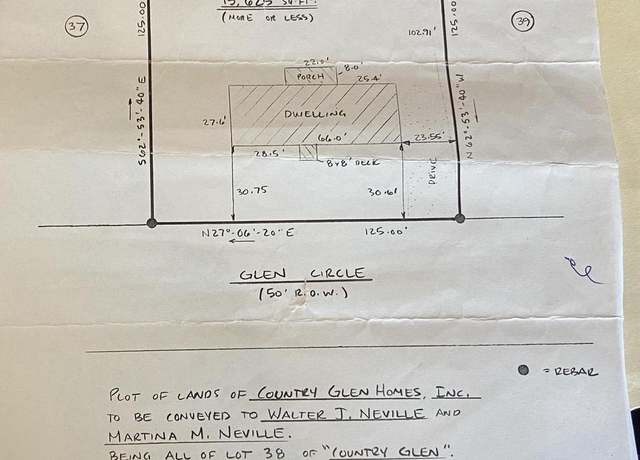 15,625 SQ. FT.
(MORE OR LESS)
37
39
125.00
125.00
102.91'
S 62°-53'-40" E
N 62°-53'-40" W
22.0'
8.0'
PORCH
25.4'
27.6'
DWELLING
66.0'
23.55'
28.5'
8'x8' DECK
DRIVE
30.75
30.61'
N27°-06'-20" E
125.00'
GLEN CIRCLE
(50' R.O.W.)
= REBAR
PLOT OF LANDS OF COUNTRY GLEN HOMES, INC.
TO BE CONVEYED TO WALTER J. NEVILLE AND
MARTINA M. NEVILLE.
BEING ALL OF LOT 38 OF "COUNTRY GLEN".